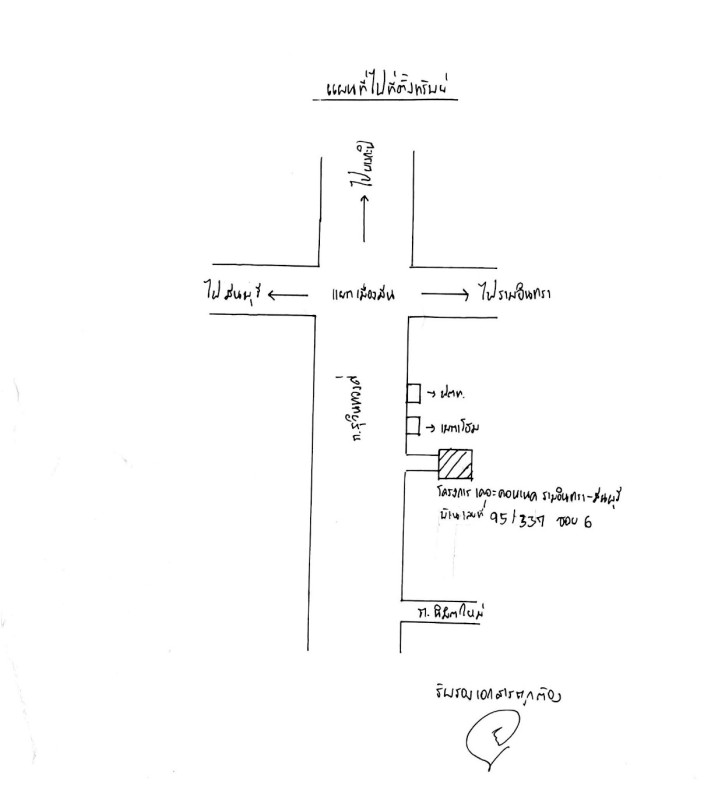 แผนที่ไปที่ตั้งทรัพย์
ไป
ไปมีนบุรี
แยกเมืองมีน
ไปรามอินทรา
ถ.
ปตท.
โครงการ เดอะคอนเนค รามอินทรา-มีนบุรี
บ้านเลขที่ 95/337 ซอย 6
ถ. นิมิตใหม่
รับรองเอกสารถูกต้อง